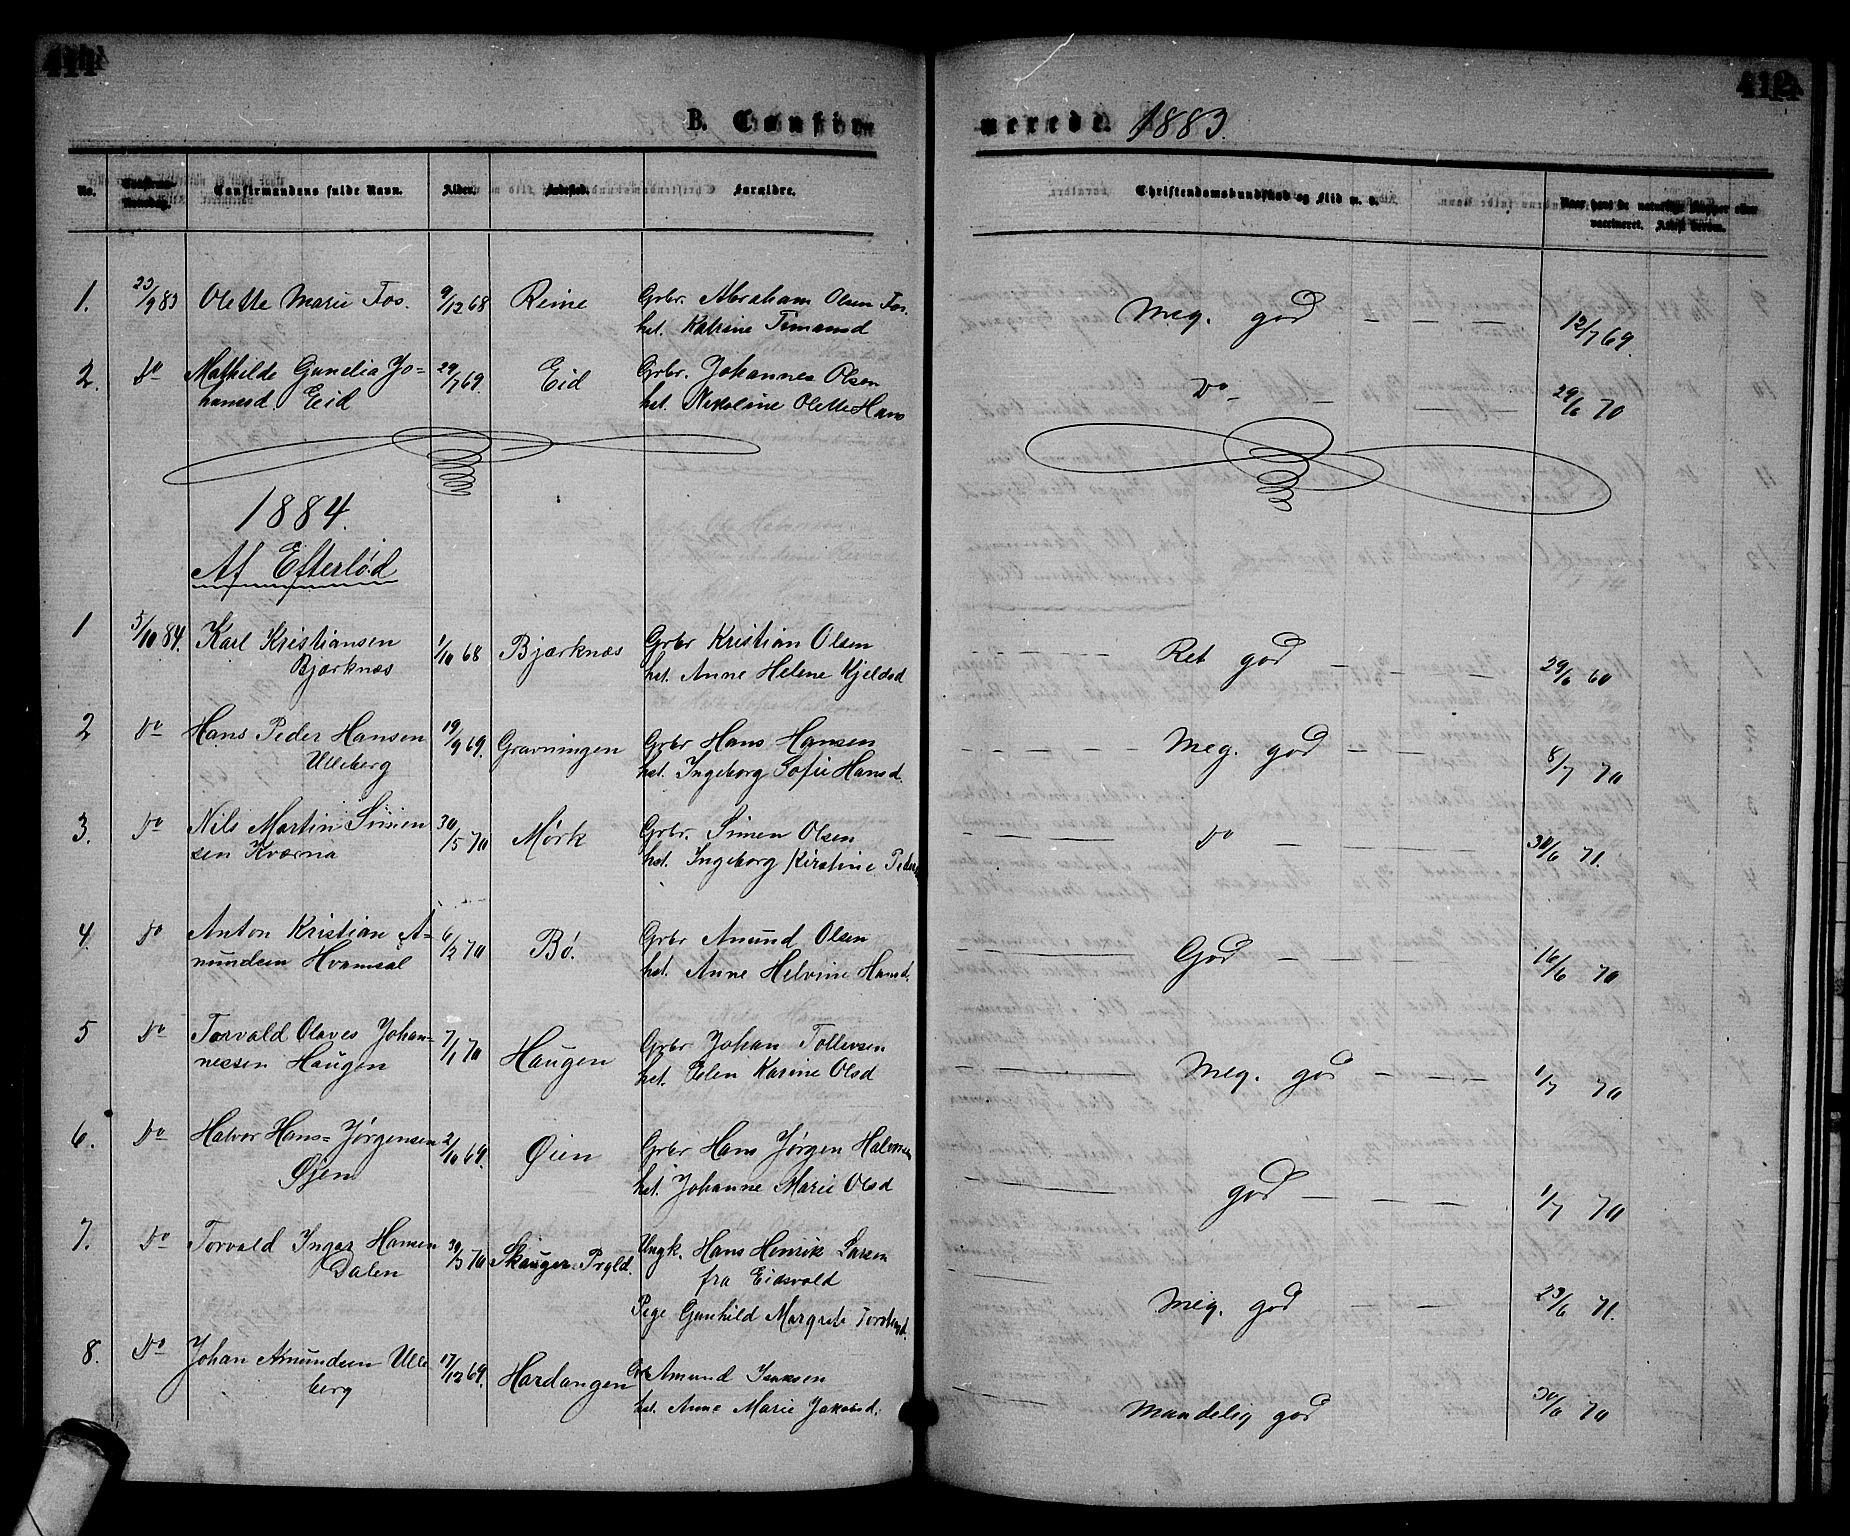 B. Confir
merede. 1883.
No.
Confirma-
tionsdag.
Confirmandens fulde Navn.
Alder.
Fødested.
Forældre.
Christendomskundskab og Flid m. v.
Naar havt de naturlige Kopper eller
vaccineret. Attest derom.
1. 23/9 83 Olette Marie Fos. 9/12 68 Reine Grbr. Abraham Olsen Fos. Meg. god — — — 12/7 69.
hst. Katrine Timansd
2. Do Mathilde Gunelia Jo= 29/7 69. Eid Grbr. Johannes Olsen Do — — — 29/6 70
hansd. Eid hst. Nikoline Olette Hans
1884.
Af Efterlød
1 5/10 84. Karl Kristiansen 1/10 68 Bjærknæs Grbr Kristian Olsen Ret god — — — 29/6 60
Bjærknæs hst. Anne Helene Kjeldsd
2 Do Hans Peder Hansen 19/9 69. Gravningen Grbr Hans Hansen Meg. god — — 8/7 70
Ulleberg hst. Ingeborg Sofie Hansd.
3. Do Nils Martin Simen 30/5 70 Mørk Grbr. Simen Olsen Do — — — 30/6 71.
sen Kværna hst. Ingeborg Kirstine Peders
4. Do Anton Kristian A= 6/2 70 Bø. Grbr Amund Olsen God — — — 16/6 70
mundsen Hvamsal hst. Anne Helvine Hansd.
5 Do Torvald Olaves Johan= 7/1 70 Haugen Grbr Johan Tollevsen Meg. god — — — 1/7 70
nessen Haugen hst. Elen Karine Olsd
6. Do Halvor Hans=Jørgensen 2/10 69. Øien Grbr Hans Jørgen Halvorsen god — — — 1/7 70
Øjen hst. Johanne Marie Olsd
7. Do Torvald Inger Hansen 30/3 70 Skauger Prgld. Ungk. Hans Henrik Larsen Meg. god — — 23/6 71.
Dalen fra Eidsvold
Pige Gunhild Margrete Torstensd.
8. Do Johan Amundsen Ulle 17/12 69. Hardangen Grb Amund Isaksen Mandelig god 30/6 70
berg hst. Anne Marie Jakobsd.